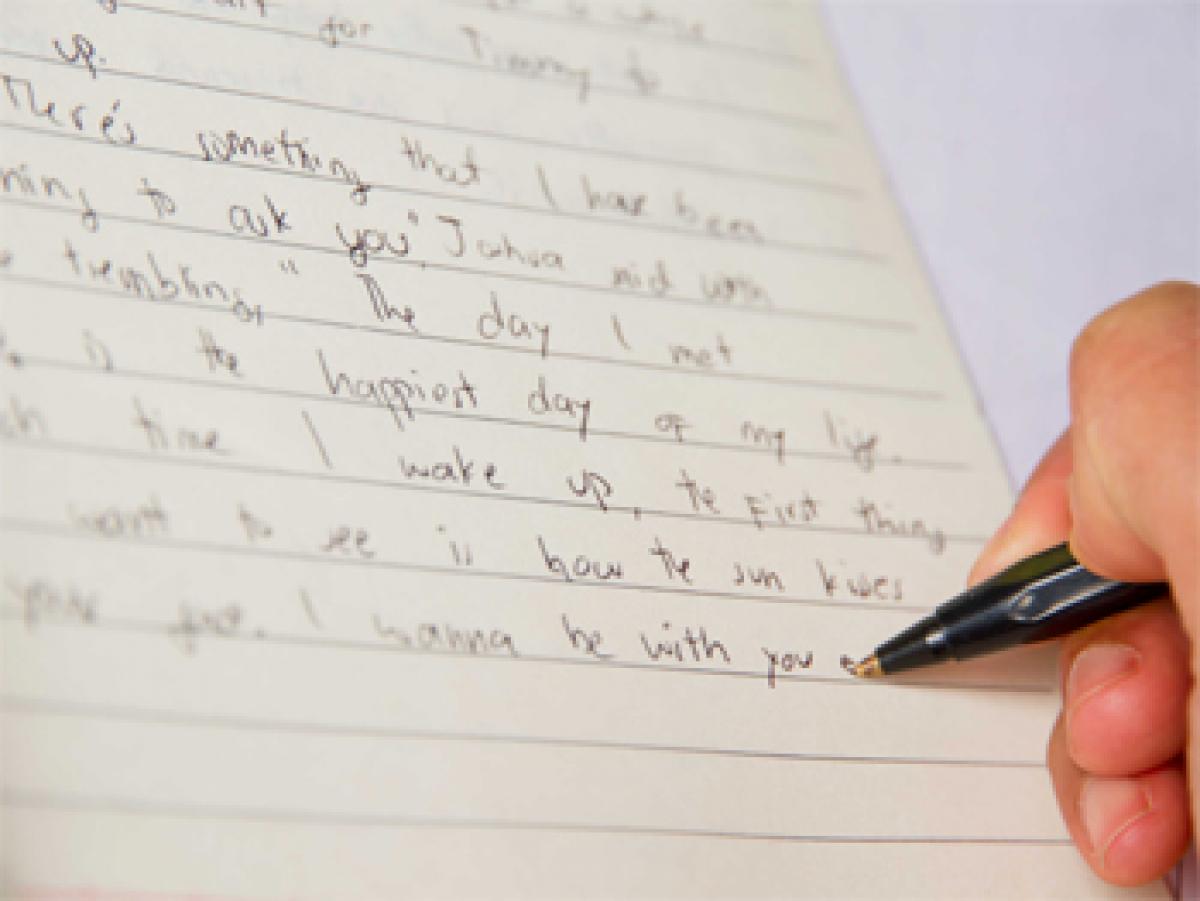 for Timmy to
up.
There's something that I have been
ning to ask you", Joshua said with
trembling, " The day I met
is the happiest day of my life.
ch time I wake up, the First thing
want to see is how the sun kisses
your face. I wanna be with you